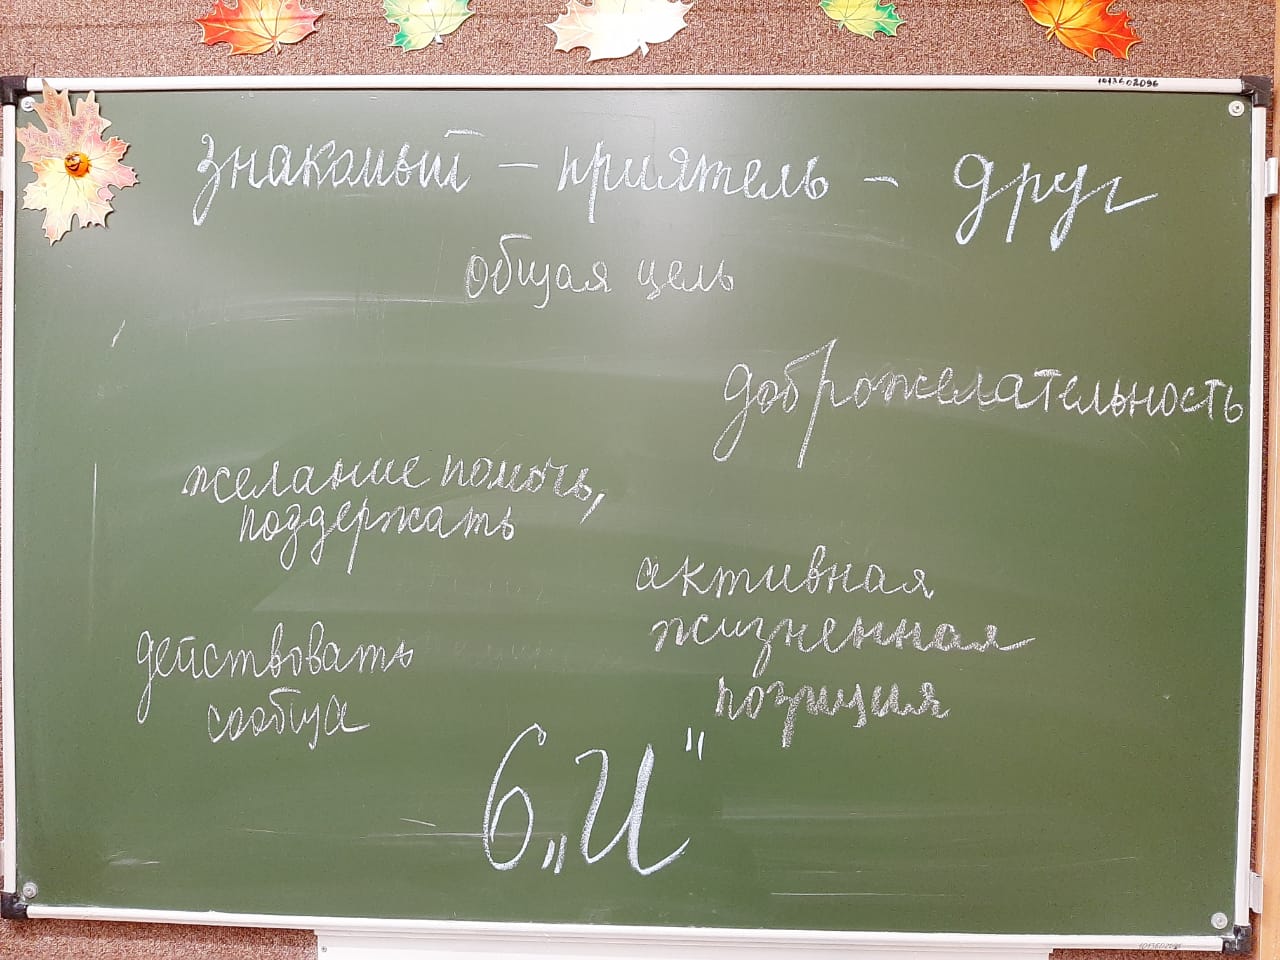 1013602096
знакомый – приятель – друг
общая цель
доброжелательность
желание помочь,
поддержать
активная
жизненная
позиция
действовать
сообща
6 „И"
1013602096